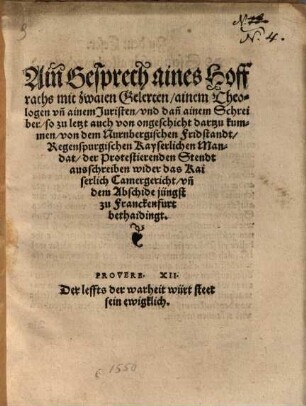 N. 4.
Ain Gesprech aines Hoff
rachs mit zwaien Gelerten/ ainem Theo-
logen vñ ainem Juristen/ vnd dañ ainem Schrei
ber/ so zu letzt auch von ongeschicht darzu kum-
men/ von dem Nurnbergischen Fridstandt/
Regenspurgischen Kayserlichen Man-
dat/ der Protestierenden Stendt
ausschreiben wider das Kai
serlich Camergericht/ vñ
dem Abschide jüngst
zu Franckenfurt
bethaidingt.
PROVERB. XII.
Der leffts der warheit würt steet
sein ewigklich.